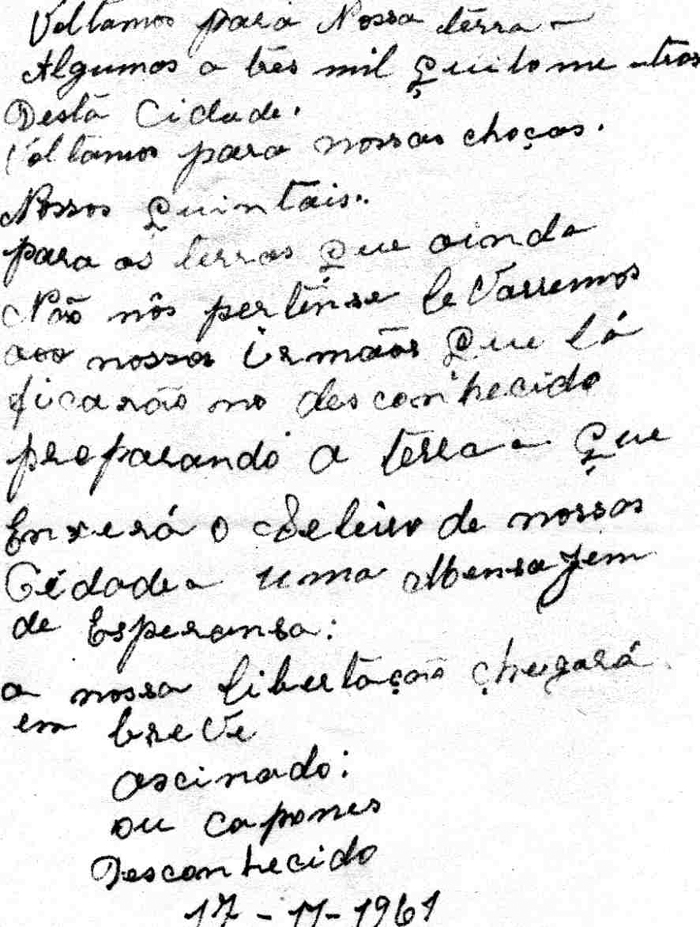 Voltamos para Nossa terra -
Algumos a três mil Quilome-utros
Desta Cidade.
Voltamos para nossas choças.
Nossos Quintais..
para as terras que ainda
Não nôs pertênse le Varremos
aoo nossos irmãos Que lá
ficarão no desconhecido
preparando a terra - Que
Enxerá o Seleiro de nossas
Cidades uma Mensajem
de Esperansa:
a nossa libertação chegará
em breve
ascinado:
ou capones
Desconhecido
17-11-1961